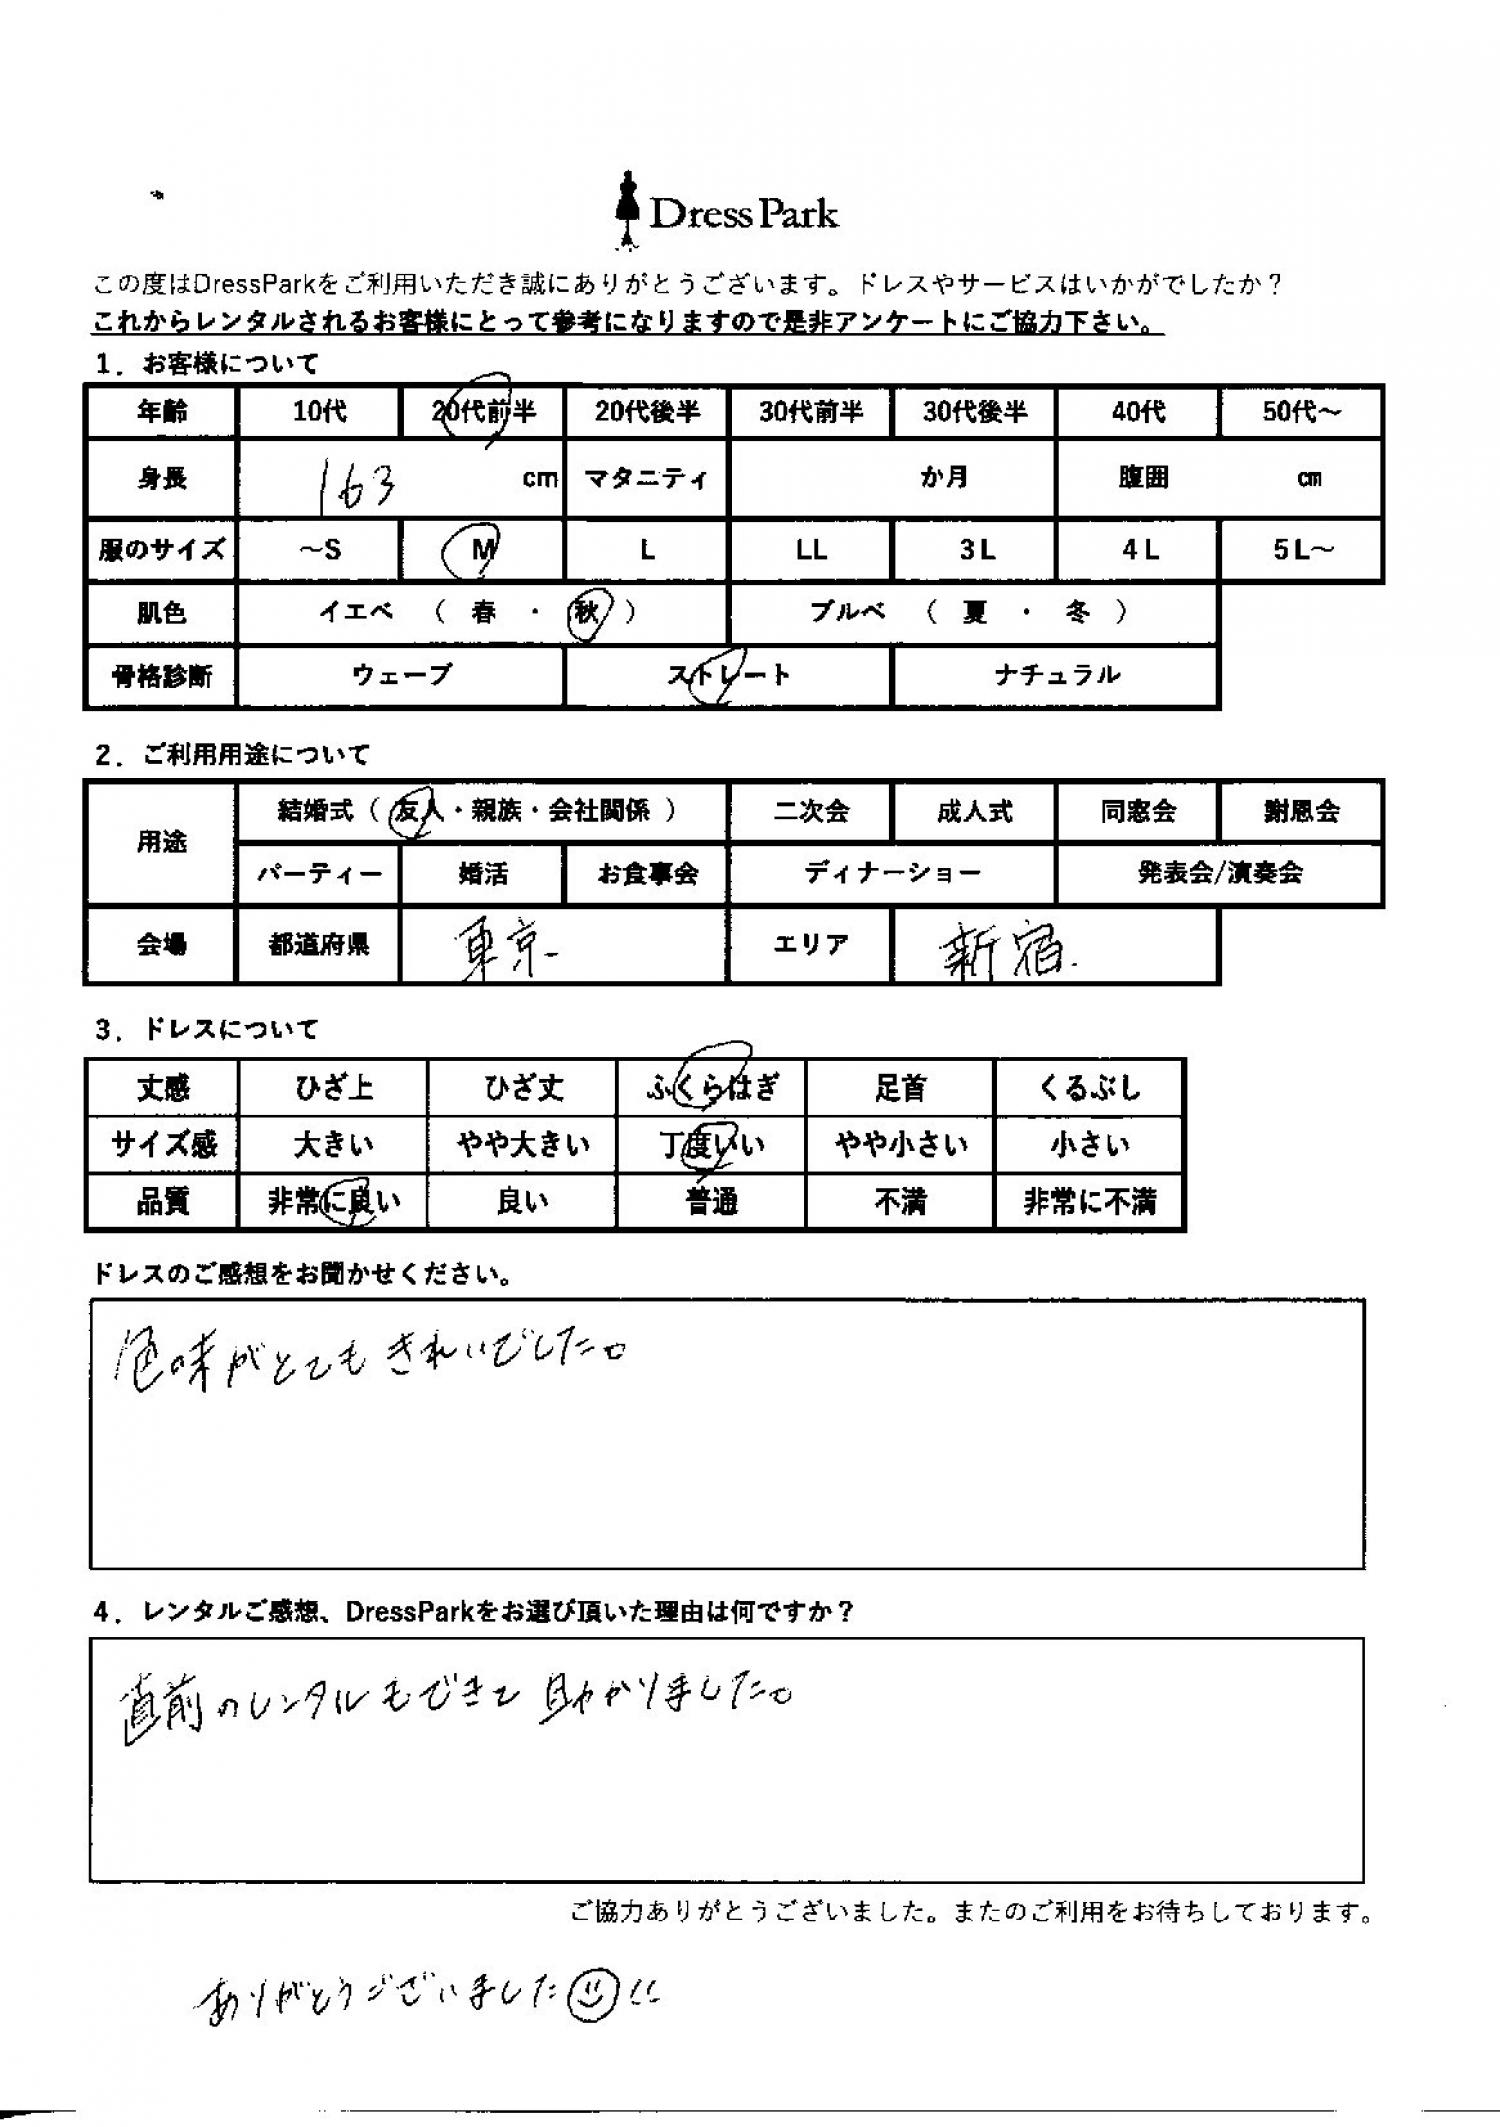 DressPark
この度はDressParkをご利用いただき誠にありがとうございます。ドレスやサービスはいかがでしたか？
これからレンタルされるお客様にとって参考になりますので是非アンケートにご協力下さい。
1．お客様について
年齢 10代 20代前半 20代後半 30代前半 30代後半 40代 50代～
身長 163 cm マタニティ か月 腹囲 cm
服のサイズ ～S M L LL 3L 4L 5L～
肌色 イエベ （ 春 ・ 秋 ） ブルベ （ 夏 ・ 冬 ）
骨格診断 ウェーブ ストレート ナチュラル
2．ご利用用途について
用途 結婚式（ 友人・親族・会社関係 ） 二次会 成人式 同窓会 謝恩会
パーティー 婚活 お食事会 ディナーショー 発表会/演奏会
会場 都道府県 東京 エリア 新宿
3．ドレスについて
丈感 ひざ上 ひざ丈 ふくらはぎ 足首 くるぶし
サイズ感 大きい やや大きい 丁度いい やや小さい 小さい
品質 非常に良い 良い 普通 不満 非常に不満
ドレスのご感想をお聞かせください。
色味がとてもきれいでした。
4．レンタルご感想、DressParkをお選び頂いた理由は何ですか？
直前のレンタルもできて助かりました。
ご協力ありがとうございました。またのご利用をお待ちしております。
ありがとうございました